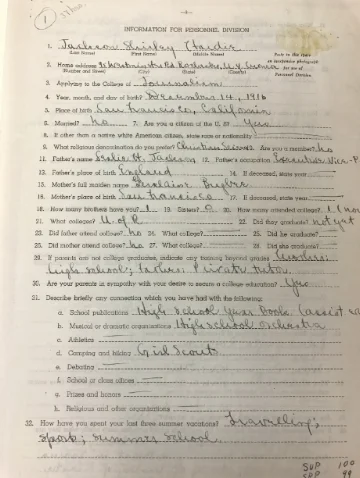 1
-4-
INFORMATION FOR PERSONNEL DIVISION
1. Jackson Shirley Hardie
(Last Name) (First Name) (Middle Name)
2. Home address Rd. Rochester, N.Y.
(Number and Street) (City) (State) (County)
3. Applying to the College of Journalism
4. Year, month, and day of birth? December 14, 1916
5. Place of birth San Francisco, California
6. Married? no 7. Are you a citizen of the U. S? Yes
8. If other than a native white American citizen, state race or nationality
9. What religious denomination do you prefer? Christian Science Are you a member? no
11. Father's name Leslie H. Jackson 12. Father's occupation Executive Vice-P
13. Father's place of birth England 14. If deceased, state year
15. Mother's full maiden name Geraldine Bugbee
16. Mother's place of birth San Francisco 17. If deceased, state year
18. How many brothers have you? 1 19. Sisters? 0 20. How many attended college? 1
21. What colleges? U. of R. 22. Did they graduate? not yet
23. Did father attend college? no 24. What college? 25. Did he graduate?
26. Did mother attend college? no 27. What college? 28. Did she graduate?
29. If parents are not college graduates, indicate any training beyond grades Mother:
high school; father: private tutor
30. Are your parents in sympathy with your desire to secure a college education? Yes
31. Describe briefly any connection which you have had with the following:
a. School publications High School Year Book (assist
b. Musical or dramatic organizations High school orchestra
c. Athletics
d. Camping and hiking Girl Scouts
e. Debating
f. School or class offices
g. Prizes and honors
h. Religious and other organizations
32. How have you spent your last three summer vacations? Travelling;
sports; summer school.
SUP 100
SUP 99